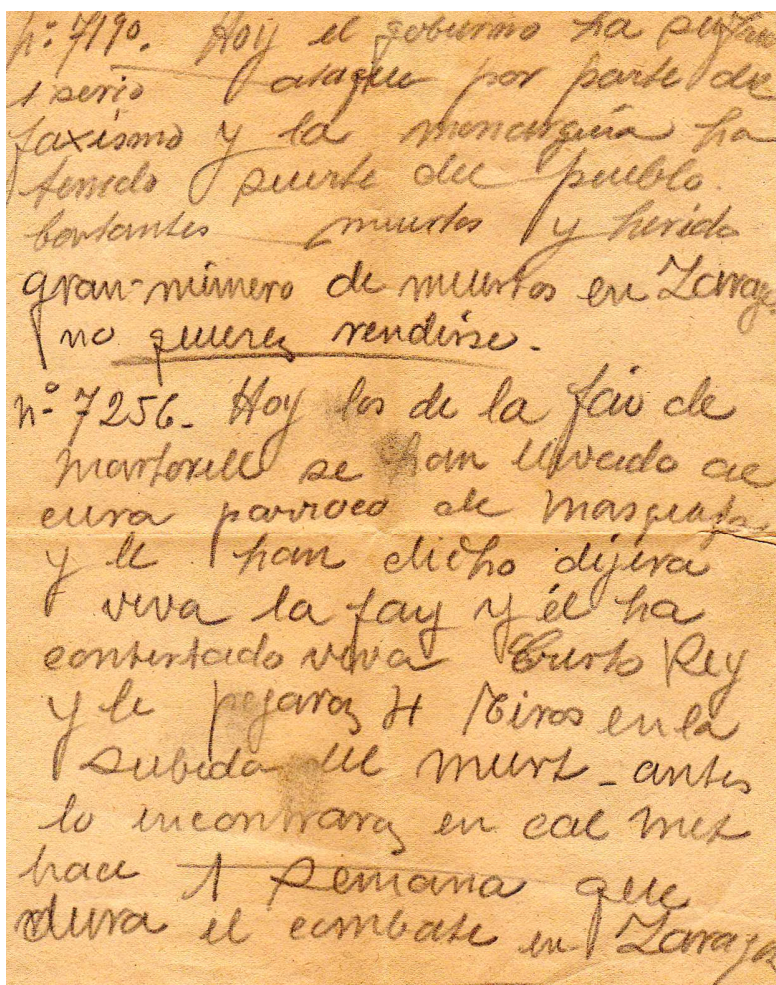 nº 7190. Hoy el gobierno ha sufrido
1 serio ataque por parte del
faxismo y la monarquia ha
tenido suerte del pueblo.
bastantes muertos y herido
gran-número de muertos en Zarago
no quieren rendirse.
nº 7256. Hoy los de la fai de
martorell se han llevado al
cura parroco de Masquefa
y le han dicho dijera
viva la fay y él ha
contestado viva Cristo Rey
y le pegaron 4 Tiros en la
subida del - antes
lo encontraron en cal
hace 1 semana que
dura el combate en Zaragoz